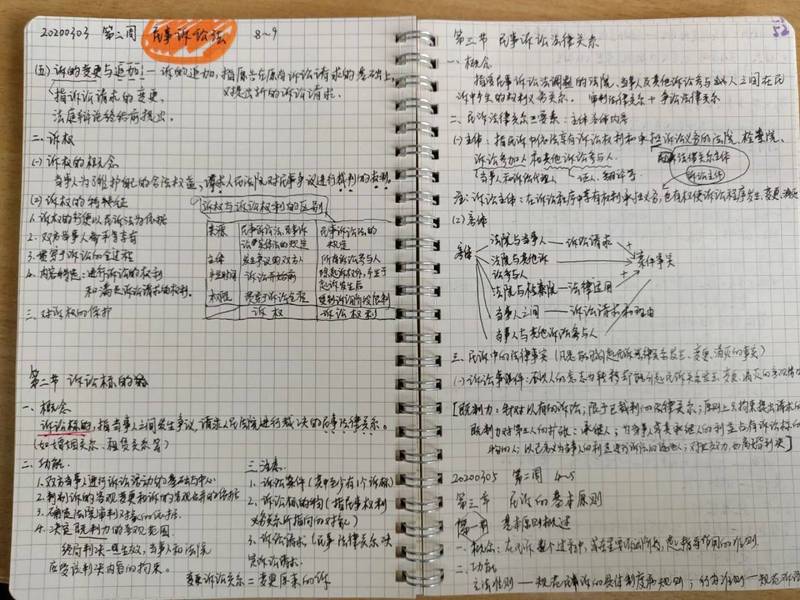 20200303 第二周 民事诉讼法 8~9
(五) 诉的变更与追加! — 诉的追加, 指原告在原有诉讼请求的基础上,
又提出新的诉讼请求.
指诉讼请求的变更.
法庭辩论终结前提出.
二、诉权
(一) 诉权的概念
当事人为了维护自己的合法权益, 请求人民法院对民事争议进行裁判的权利
(二) 诉权的特征
诉权与诉讼权利的区别
来源
民事诉讼法的
规定
主体
发生争议的双方当事人
所有诉讼参与人
诉讼开始前
诉权 诉讼权利
1. 诉权的行使以民诉法为依据
2. 双方当事人都平等享有
3. 贯穿于诉讼的全过程
4. 内容特定: 进行诉讼的权利
和满足诉讼请求的权利.
三、对诉权的保护
第二节 诉讼标的
一、概念
诉讼标的, 指当事人之间发生争议, 请求人民法院进行裁决的民事法律关系.
(如: 婚姻关系、租赁关系等)
二、功能.
1. 双方当事人进行诉讼活动的基础与中心
3. 确定法院审判对象的依据.
4. 决定既判力的客观范围
终局判决一旦生效, 当事人和法院
应受该判决内容的拘束.
三、注意:
1. 诉讼案件 (其中至少有1个诉讼标的)
2. 诉讼标的物 (指民事权利
义务关系所指向的对象)
3. 诉讼请求 (民事法律关系 决
定诉讼请求.
变更诉讼关系 = 变更原来的诉
第三节 民事诉讼法律关系
一、概念
指受民事诉讼法调整的法院、当事人及其他诉讼参与人之间在民
诉中产生的权利义务关系. 审判法律关系 + 争讼法律关系
二、民诉法律关系三要素: 主体客体内容
(一) 主体: 指民诉中依法享有诉讼权利和承担诉讼义务的法院、检察院、
诉讼参加人和其他诉讼参与人.
当事人和诉讼代理人 证人、翻译等
诉讼法律关系主体
诉讼主体
注: 诉讼主体: 在诉讼程序中享有权利承担义务, 也有权使诉讼程序发生、变更、消灭
(二) 客体
客体
法院与当事人 — 诉讼请求
法院与其他诉
讼参与人
案件事实
法院与检察院 — 法律适用
当事人之间 — 诉讼请求和理由
当事人与其他诉讼参与人
三、民诉中的法律事实 (凡是能够引起民诉法律关系发生、变更、消灭的事实)
20200305 第二周 4~5
第三章 民诉的基本原则
第一节 基本原则概述
二、功能